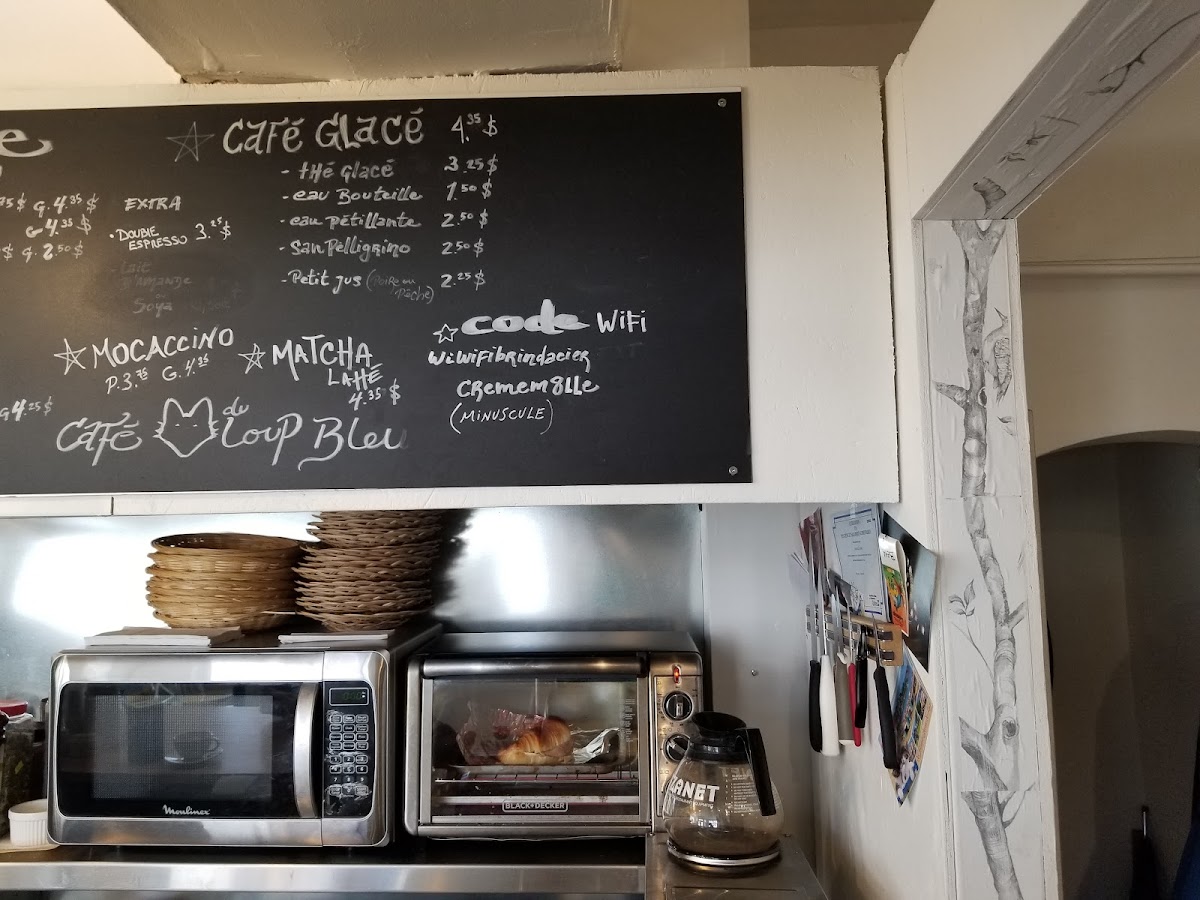 Café Glacé 4.35 $
- thé glacé 3.25 $
- eau Bouteille 1.50 $
- eau pétillante 2.50 $
- San Pelligrino 2.50 $
- Petit jus (Poire ou Pêche) 2.25 $
G. 4.35 $
G 4.35 $
G. 2.50 $
EXTRA
• DOUBLE ESPRESSO 3.25 $
- Lait
D'AMANDE
Soya
MOCACCINO
P. 3.75 G. 4.35
MATCHA
LATTÉ
4.35 $
G 4.25 $
Café du Loup Bleu
code WiFi
WiWiFibrindacier
CRemem8lle
(MINUSCULE)
Moulinex
BLACK+DECKER
PLANET